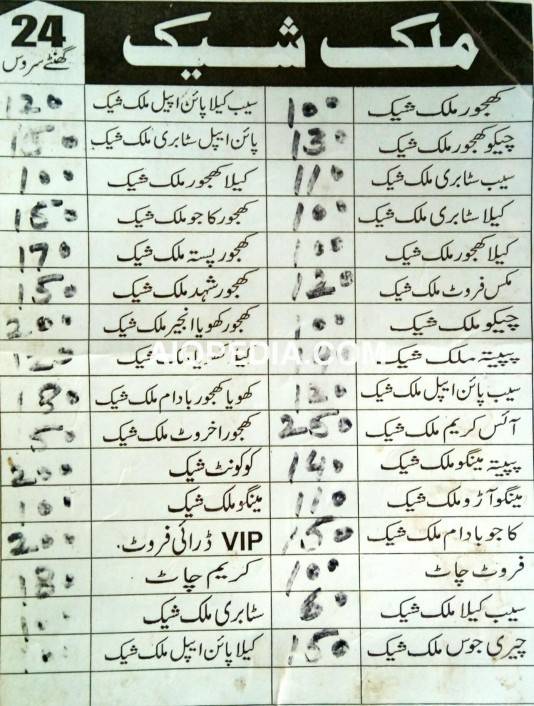 ملک شیک
24
گھنٹے سروس
کھجور ملک شیک 100
چیکو کھجور ملک شیک 130
سیب سٹابری ملک شیک 110
کیلا سٹابری ملک شیک 100
کیلا کھجور ملک شیک 100
مکس فروٹ ملک شیک 120
چیکو ملک شیک 100
پپیتہ ملک شیک
سیب پائن ایپل ملک شیک 120
آئس کریم ملک شیک 250
پپیتہ مینگو ملک شیک 140
مینگو آڑو ملک شیک 110
کاجو بادام ملک شیک 150
فروٹ چاٹ 100
سیب کیلا ملک شیک 60
چیری جوس ملک شیک 150
سیب کیلا پائن اپیل ملک شیک 120
پائن ایپل سٹابری ملک شیک 150
کیلا کھجور ملک شیک 100
کھجور کاجو ملک شیک 150
کھجور پستہ ملک شیک 170
کھجور شہد ملک شیک 150
کھجور کھویا انجیر ملک شیک 200
ملک شیک 120
کھویا کھجور بادام ملک شیک 180
کھجور اخروٹ ملک شیک
کوکونٹ شیک 200
مینگو ملک شیک 100
VIP ڈرائی فروٹ. 200
کریم چاٹ 180
سٹابری ملک شیک 100
کیلا پائن ایپل ملک شیک
AIOPEDIA.COM